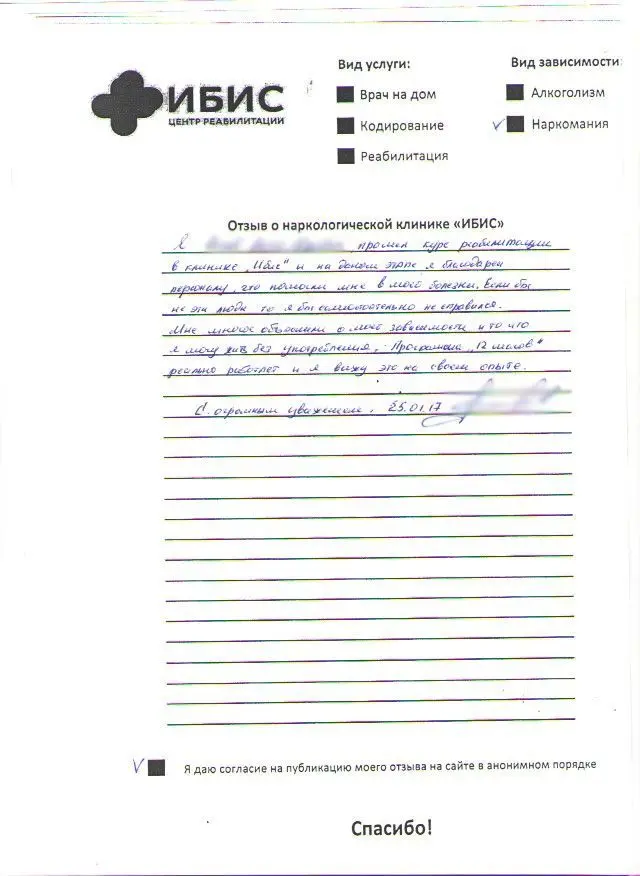 ИБИС
ЦЕНТР РЕАБИЛИТАЦИИ
Вид услуги:
Врач на дом
Кодирование
Реабилитация
Вид зависимости:
Алкоголизм
Наркомания
Отзыв о наркологической клинике «ИБИС»
Я прошел курс реабилитации
в клинике "Ибис" и на данном этапе я благодарен
персоналу, что помогли мне в моей болезни. Если бы
не эти люди то я бы самостоятельно не справился.
Мне многое объяснили о моей зависимости и то что
я могу жить без употребления. Программа "12 шагов"
реально работает и я вижу это на своем опыте.
С огромным уважением. 25.01.17
Я даю согласие на публикацию моего отзыва на сайте в анонимном порядке
Спасибо!